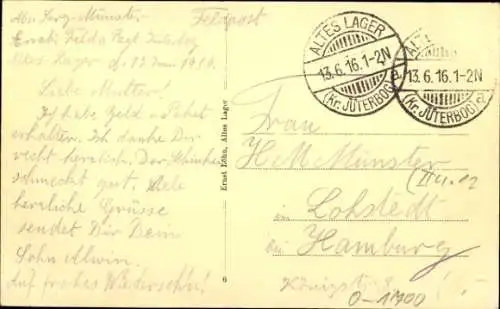 Abs. Serg. Münster Feldpost
Ers. Feld a Regt. Jüterbog
Altes Lager d. 12 Juni 1916.
Liebe Mutter!
Ich habe Geld u Paket
erhalten. Ich danke Dir
recht herzlich. Der Schinken
schmeckt gut. Viele
herzliche Grüsse
sendet Dir Dein
Sohn Alwin.
Auf frohes Wiedersehn!
Ernst Löhn, Altes Lager
6
ALTES LAGER
13.6.16.1-2N
a
(Kr. JÜTERBOG)
ALTES LAGER
13.6.16.1-2N
(Kr. JÜTERBOG)
Frau
H. M. Münster
in Lokstedt
bei Hamburg
Königstr. 8
0-1400